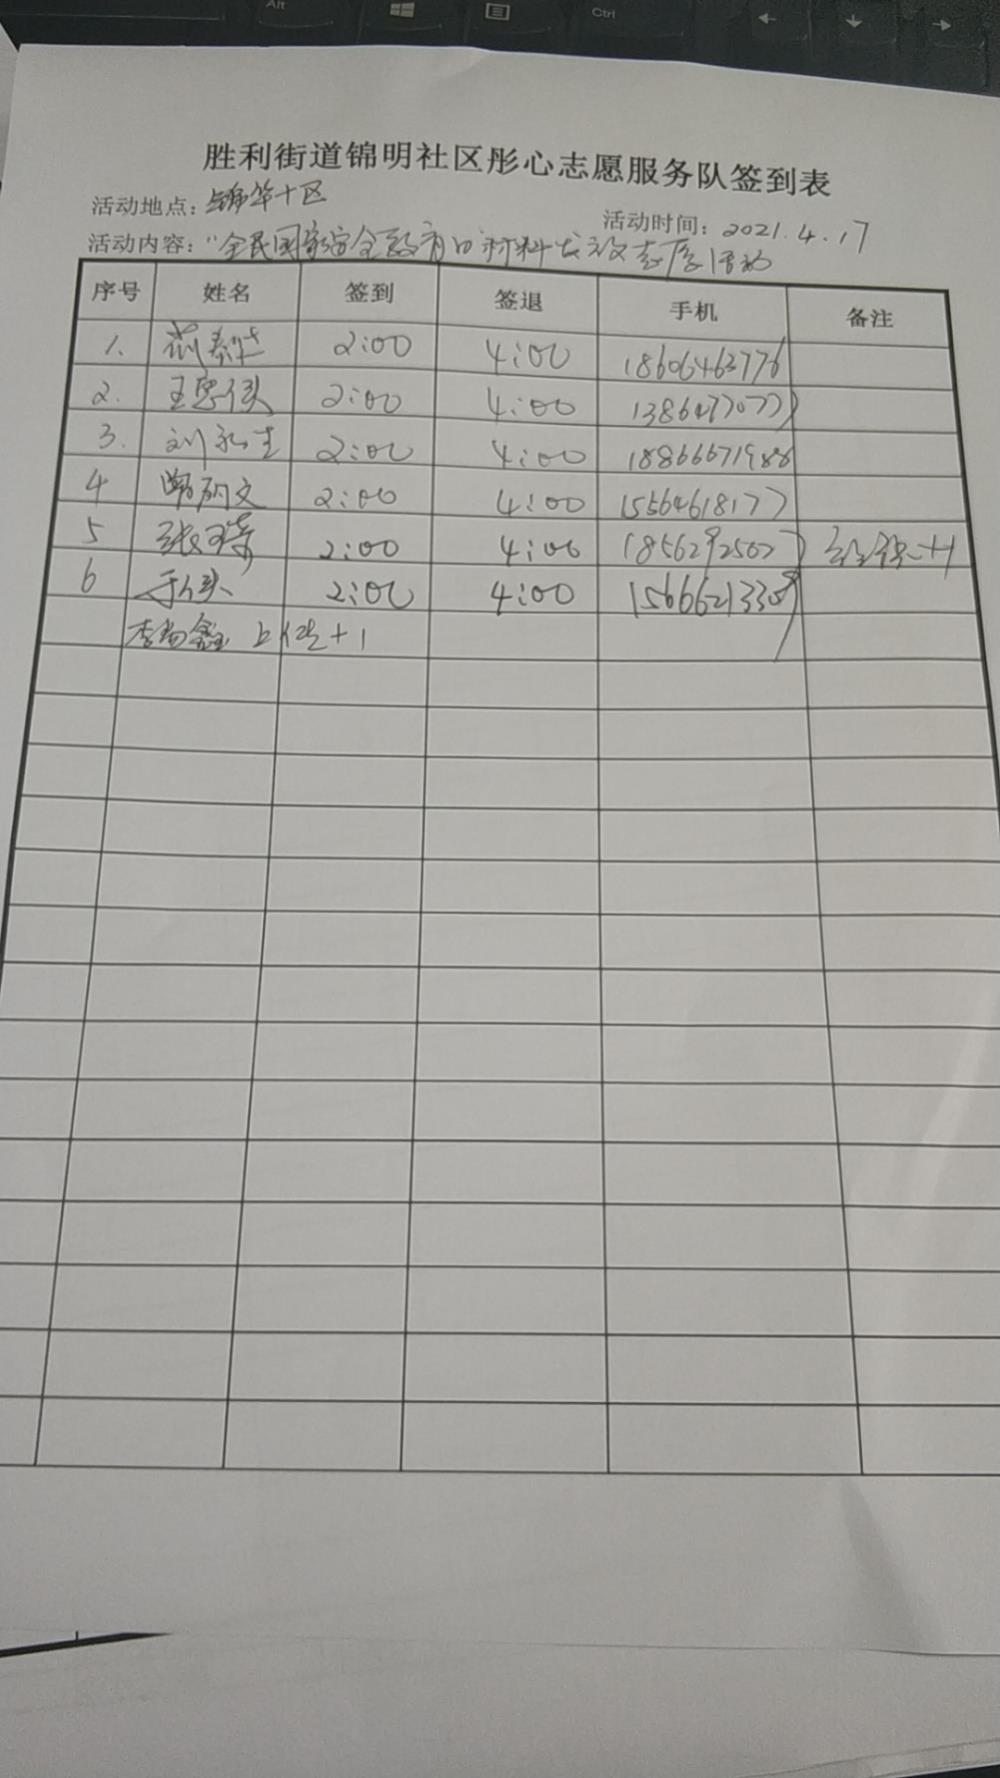 Alt Ctrl
胜利街道锦明社区彤心志愿服务队签到表
活动地点：锦华十区 活动时间：2021.4.17
活动内容："全民国家安全教育日材料发放志愿活动
序号 姓名 签到 签退 手机 备注
1. 2:00 4:00 18606463776
2. 王忠侠 2:00 4:00
3. 刘永生 2:00 4:00 18866671988
4 2:00 4:00 15564618177
5 张琦 2:00 4:00 18562925627 +1
6 于侠 2:00 4:00
李尚鑫 上 +1